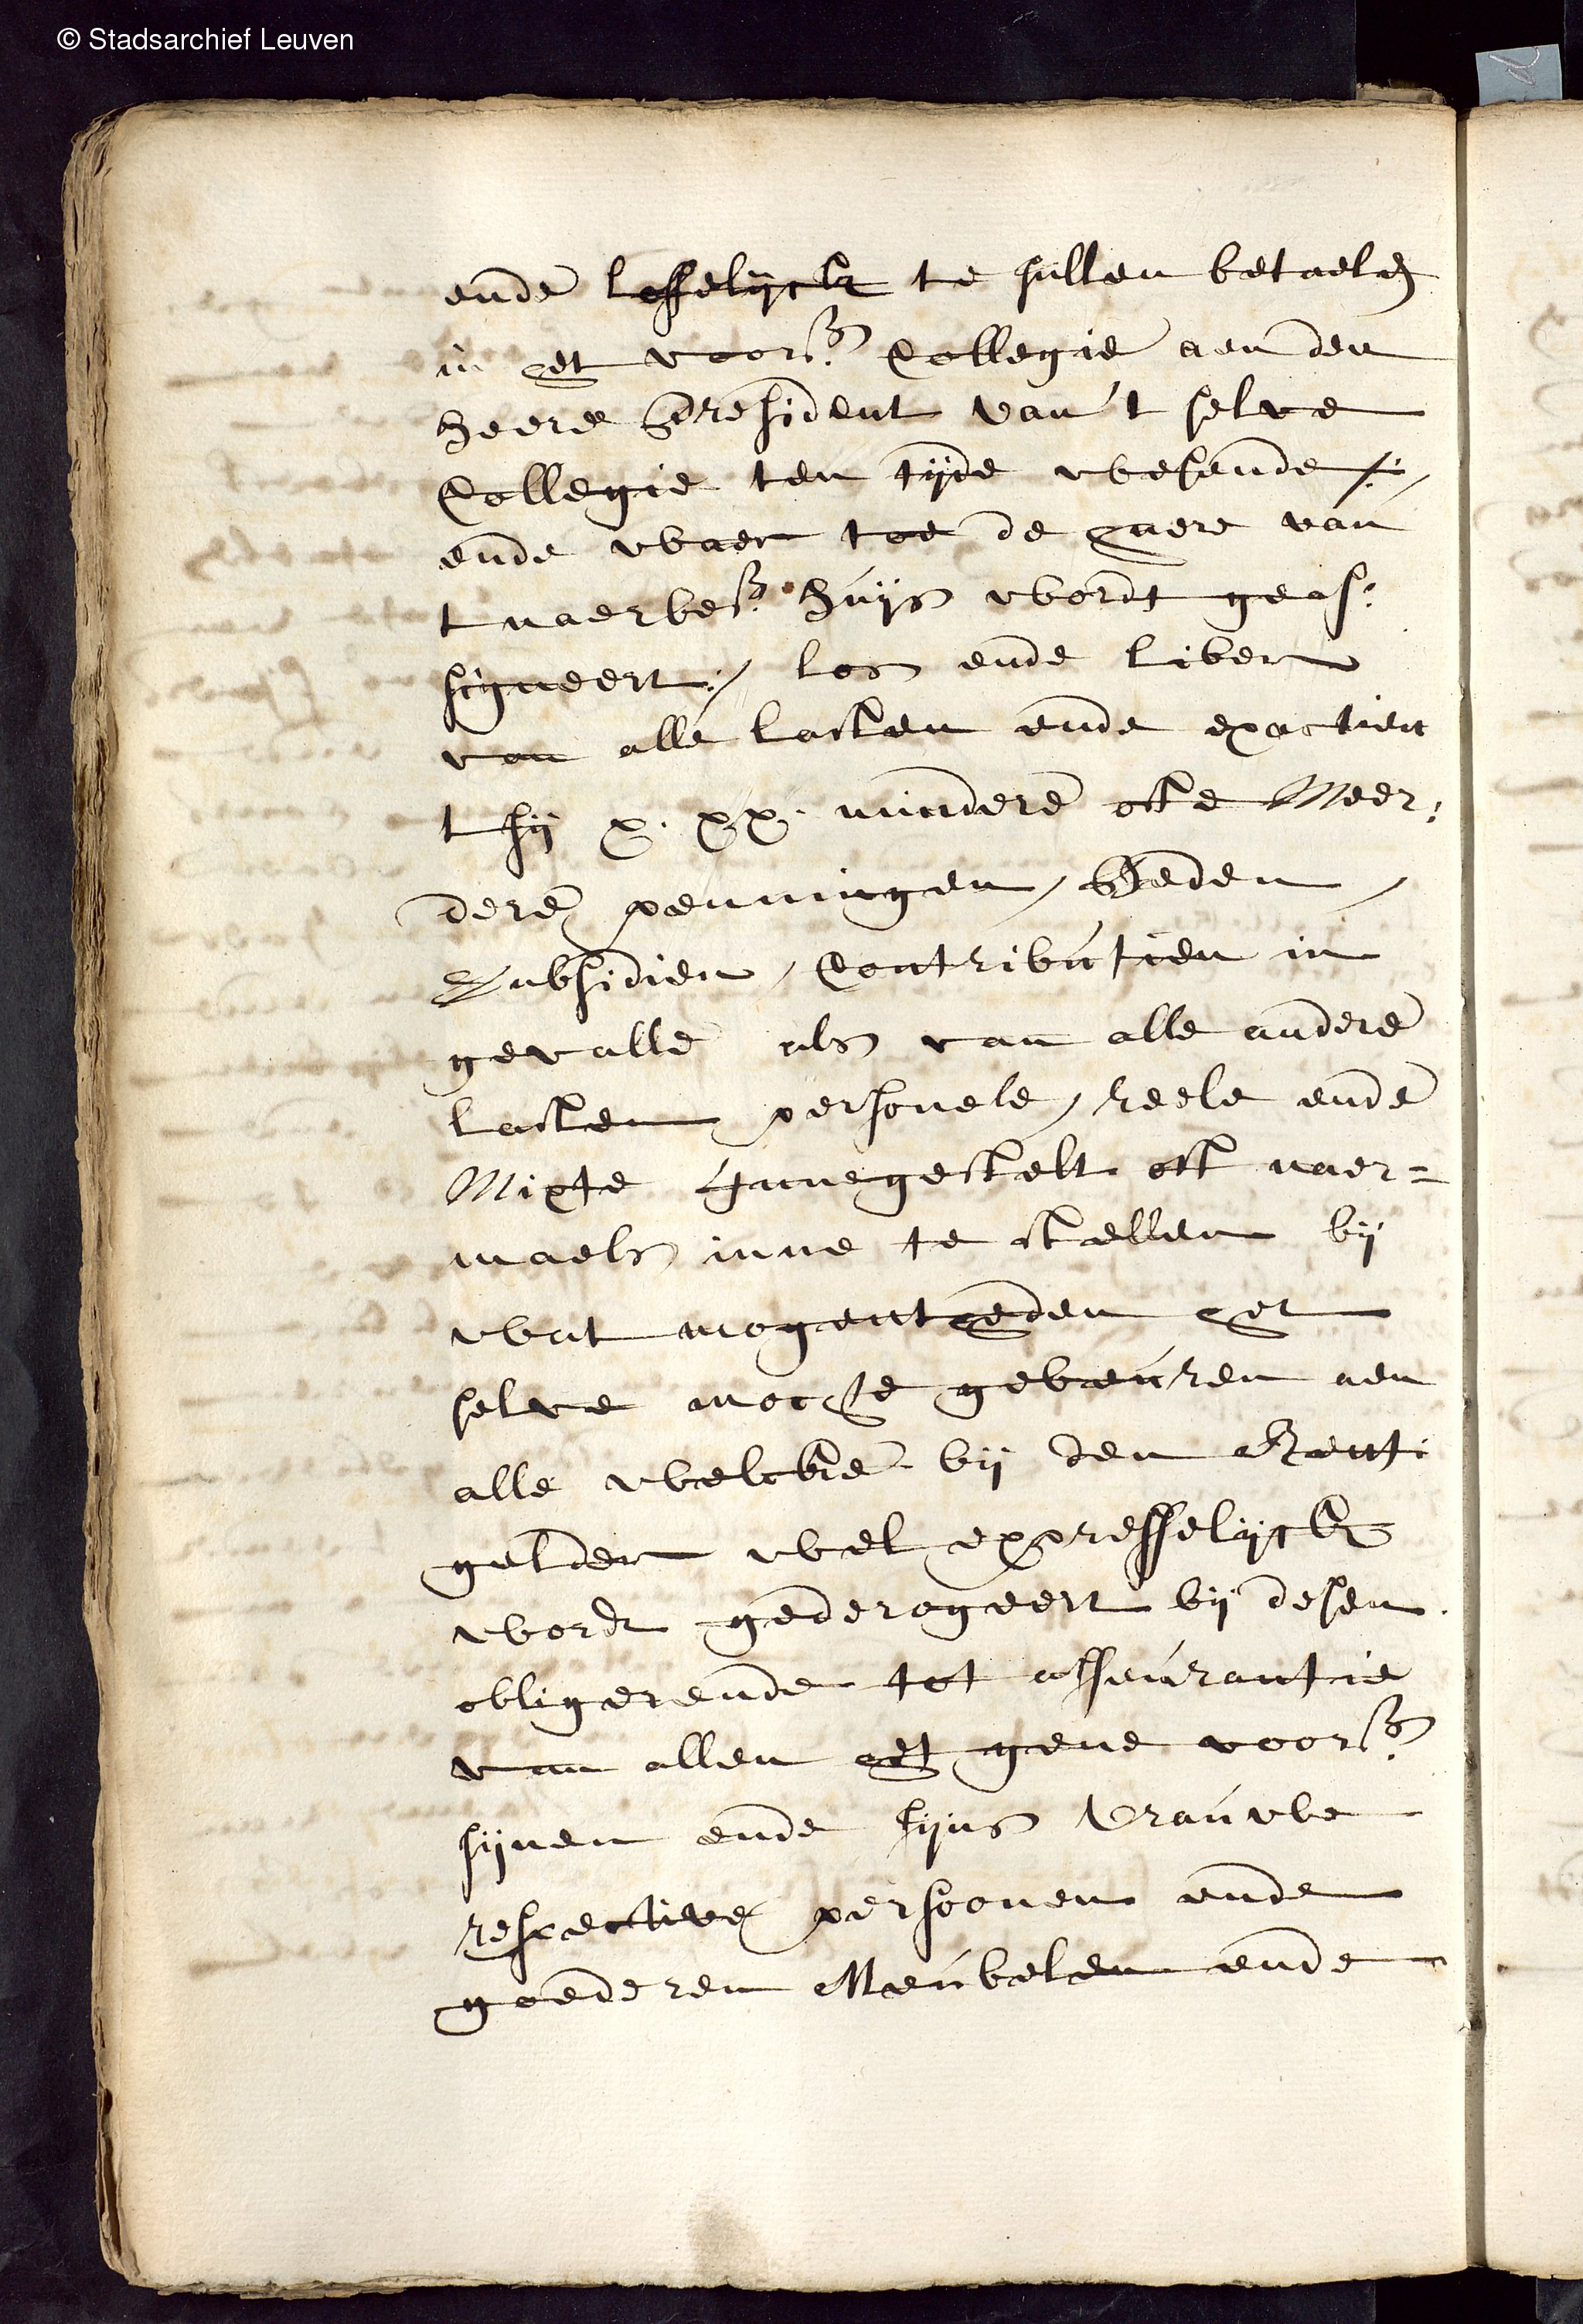 © Stadsarchief Leuven
ende loffelijck te sullen betaelen
in het voors. Collegie aen den
heere President van 't selve
Collegie ten tijde wesende /
ende waer toe de huere van
t naerbes. huijs wordt geas:
signeert / los ende liber
van alle lasten ende exactien
t sij x. xx. mindere ofte Meer:
dere penningen / Beden /
Subsidien / Contributien in
gevalle als van alle andere
lasten personele / reele ende
Mixte Innegestelt oft naer=
maels inne te stellen bij
wat mogentheden het
selve mochte gebeuren aen
alle welcke bij den Rent:
gelder wel expresselijck
wordt gederogeert bij desen.
obligerende tot asseurantie
van allen het gene voors.
sijnen ende sijns Vrauwe
respective persoonen ende
goederen Meubelen ende